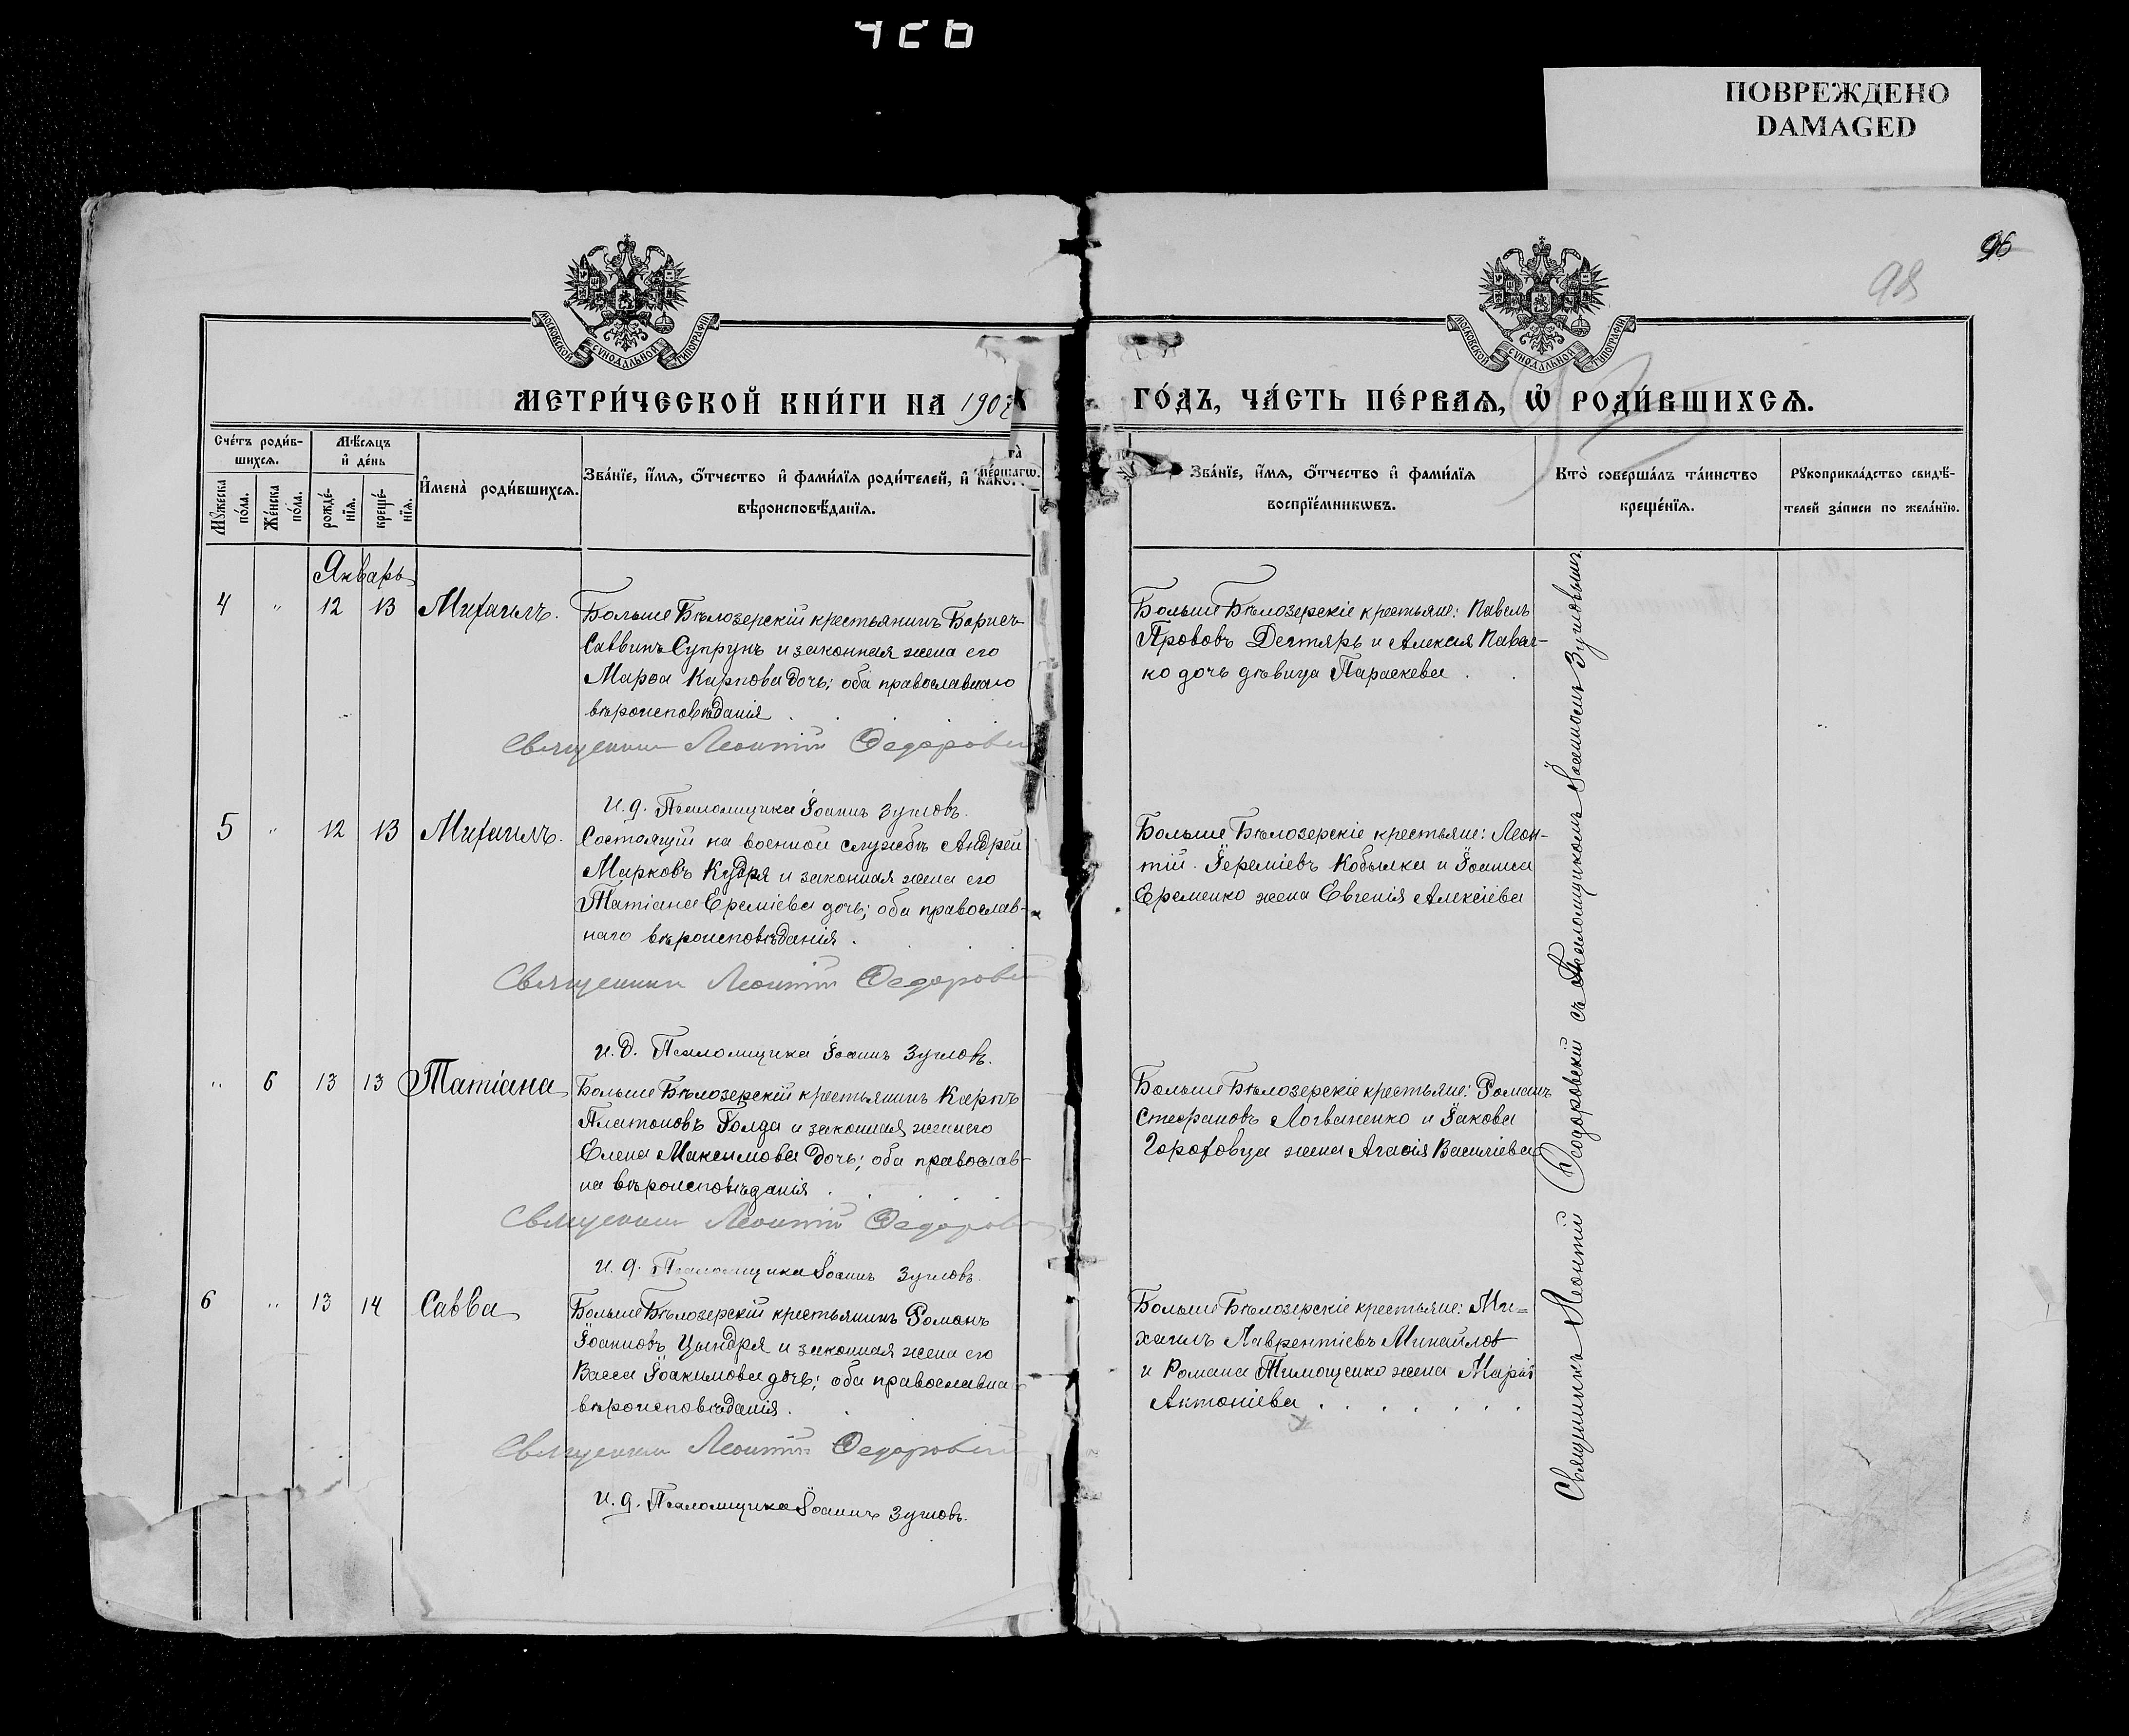 ПОВРЕЖДЕНО
DAMAGED
96
98
МОСКОВСКОЙ СѴНОДАЛЬНОЙ ТИПОГРАФІИ
МОСКОВСКОЙ СѴНОДАЛЬНОЙ ТИПОГРАФІИ
МЕТРИ́ЧЕСКОЙ КНИ́ГИ НА 190
ГО́ДЪ, ЧА́СТЬ ПЕ́РВАѦ, Ѡ҆ РОДИ́ВШИХСѦ.
Сче́тъ роди́в-
шихсѧ.
Мѣ́сѧцъ
и҆ де́нь
Мꙋ́жеска по́ла.
Же́нска по́ла.
рожде́-
нїѧ.
креще́-
нїѧ.
И҆мена̀ роди́вшихсѧ.
Зва́нїе, и҆́мѧ, ѻ҆́тчество и҆ фами́лїѧ роди́телей, и҆ како́гѡ
вѣроисповѣ́данїѧ.
Зва́нїе, и҆́мѧ, ѻ҆́тчество и҆ фами́лїѧ
воспрїе́мникѡвъ.
Кто̀ соверша́лъ та́инство
креще́нїѧ.
Рꙋкоприкла́дство свидѣ́-
телей за́писи по жела́нїю.
Январь
4 " 12 13 Михаилъ.
Больше Бѣлозерскій крестьянинъ Борисъ
Саввинъ Супрунъ и законная жена его
Марѳа Карпова дочь; оба православнаго
вѣроисповѣданія
Священник Леонтій Федоровс
И. д. Псаломщика Іоаннъ Зугловъ.
Больше Бѣлозерскіе крестьяне: Павелъ
Прововъ Дегтярь и Алексія
ко дочь дѣвица Параскева
5 " 12 13 Михаилъ.
Состоящій на военной службѣ Андрей
Марковъ Кудря и законная жена его
Татіана Ереміева дочь; оба православ-
наго вѣроисповѣданія.
Священник Леонтій Федоровс
И. д. Псаломщика Іоаннъ Зугловъ.
Больше Бѣлозерскіе крестьяне: Леон-
тій Іереміевъ Кобылка и Іоанна
Еременко жена Евгенія Алексіева
" 6 13 13 Татіана
Больше Бѣлозерскій крестьянинъ Карпъ
Платоновъ Голда и законная жена его
Елена Максимова дочь; оба православ-
на вѣроисповѣданія.
Священник Леонтій Федоровс
И. д. Псаломщика Іоаннъ Зугловъ.
Больше Бѣлозерскіе крестьяне: Романъ
Стефановъ Логвиненко и Іакова
Гороховца жена Агаѳія Васильева
6 " 13 14 Савва
Больше Бѣлозерскій крестьянинъ Романъ
Іоанновъ Цындря и законная жена его
Васса Іоакимова дочь; оба православна
вѣроисповѣданія.
Священник Леонтій Федоровскій
И. д. Псаломщика Іоаннъ Зугловъ.
Больше Бѣлозерскіе крестьяне: Ми=
хаилъ Лаврентіевъ Михайлов
и Романа Тимощенко жена Марія
Антоніева
Священникъ Леонтій Ѳеодоровскій съ Псаломщикомъ Іоанномъ Зугловымъ